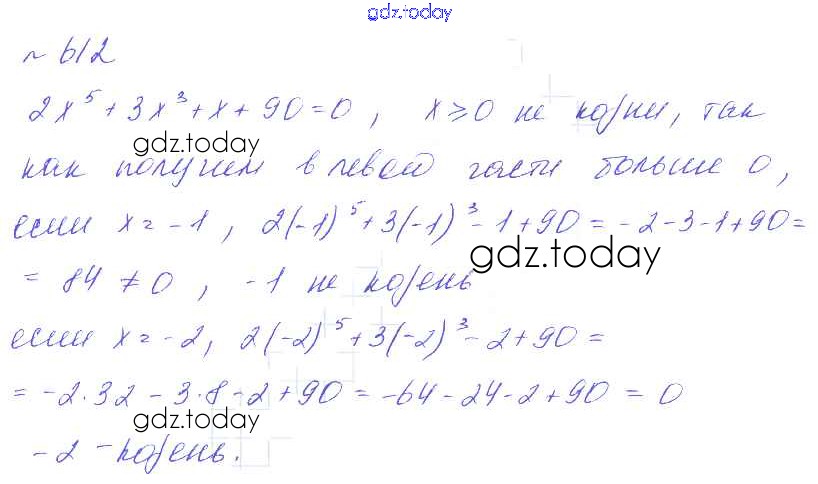 gdz.today
№ 612
2x⁵ + 3x³ + x + 90 = 0, x ⩾ 0 не корни, так
gdz.today
как получим в левой части больше 0,
если x = -1, 2(-1)⁵ + 3(-1)³ - 1 + 90 = -2 - 3 - 1 + 90 =
= 84 ≠ 0, -1 не корень
gdz.today
если x = -2, 2(-2)⁵ + 3(-2)³ - 2 + 90 =
= -2·32 - 3·8 - 2 + 90 = -64 - 24 - 2 + 90 = 0
gdz.today
-2 - корень.